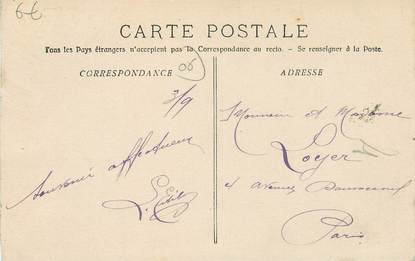 6€
CARTE POSTALE
Tous les Pays étrangers n'acceptent pas la Correspondance au recto. - Se renseigner à la Poste.
CORRESPONDANCE
05
3/9
Souvenir affectueux
ADRESSE
Monsieur et Madame
Loyer
avenue
Paris